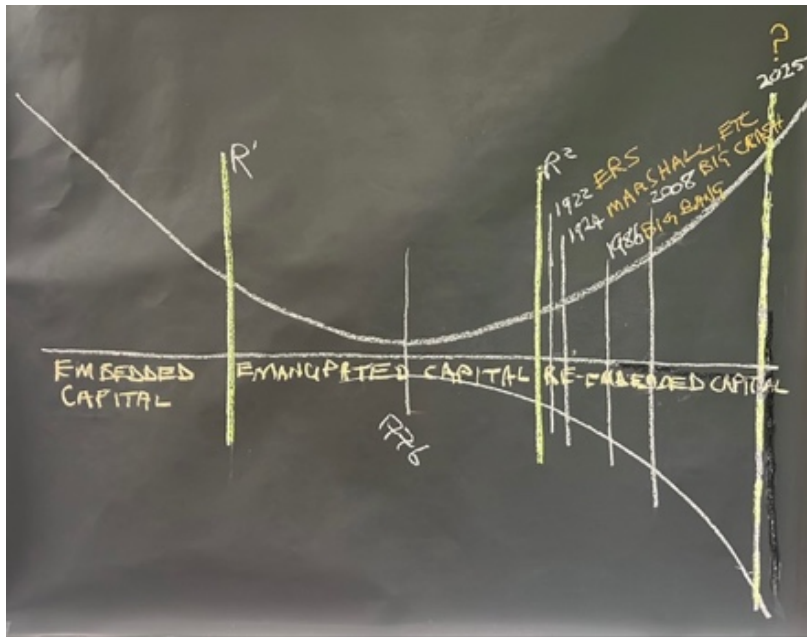 ?
2025
R1
R2
1922 ERS
1924 MARSHALL, ETC
1986 BIG BANG
2008 BIG CRASH
EMBEDDED
CAPITAL
EMANCIPATED CAPITAL
RE-EMBEDDED CAPITAL
1776